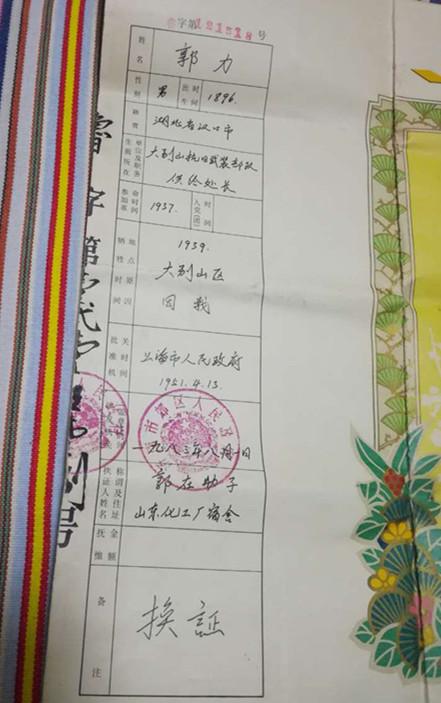 字第121518号
姓名 郭力
性别 男 出生时间 1896.
籍贯 湖北省汉口市
生前所在单位及职务 大别山抗日武装部队
供给处长
参加革命时间 1937. 入党(团)时间
牺牲时间地点原因 1939.
大别山区
因战
批准机关时间 上海市人民政府
1951.4.13.
市郊区人民政
一九八三年八月一日
持证人姓名称谓及住址 郭在勋 子
山东化工厂宿舍
抚恤金额
备注 换证
鲁字第
号